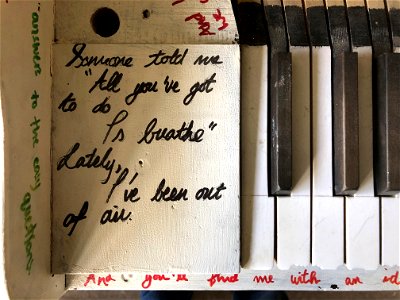 Someone told me
"All you've got
to do
Is breathe"
Lately,
I've been out
of air.
"answer to the easy question
And you'll find me with an